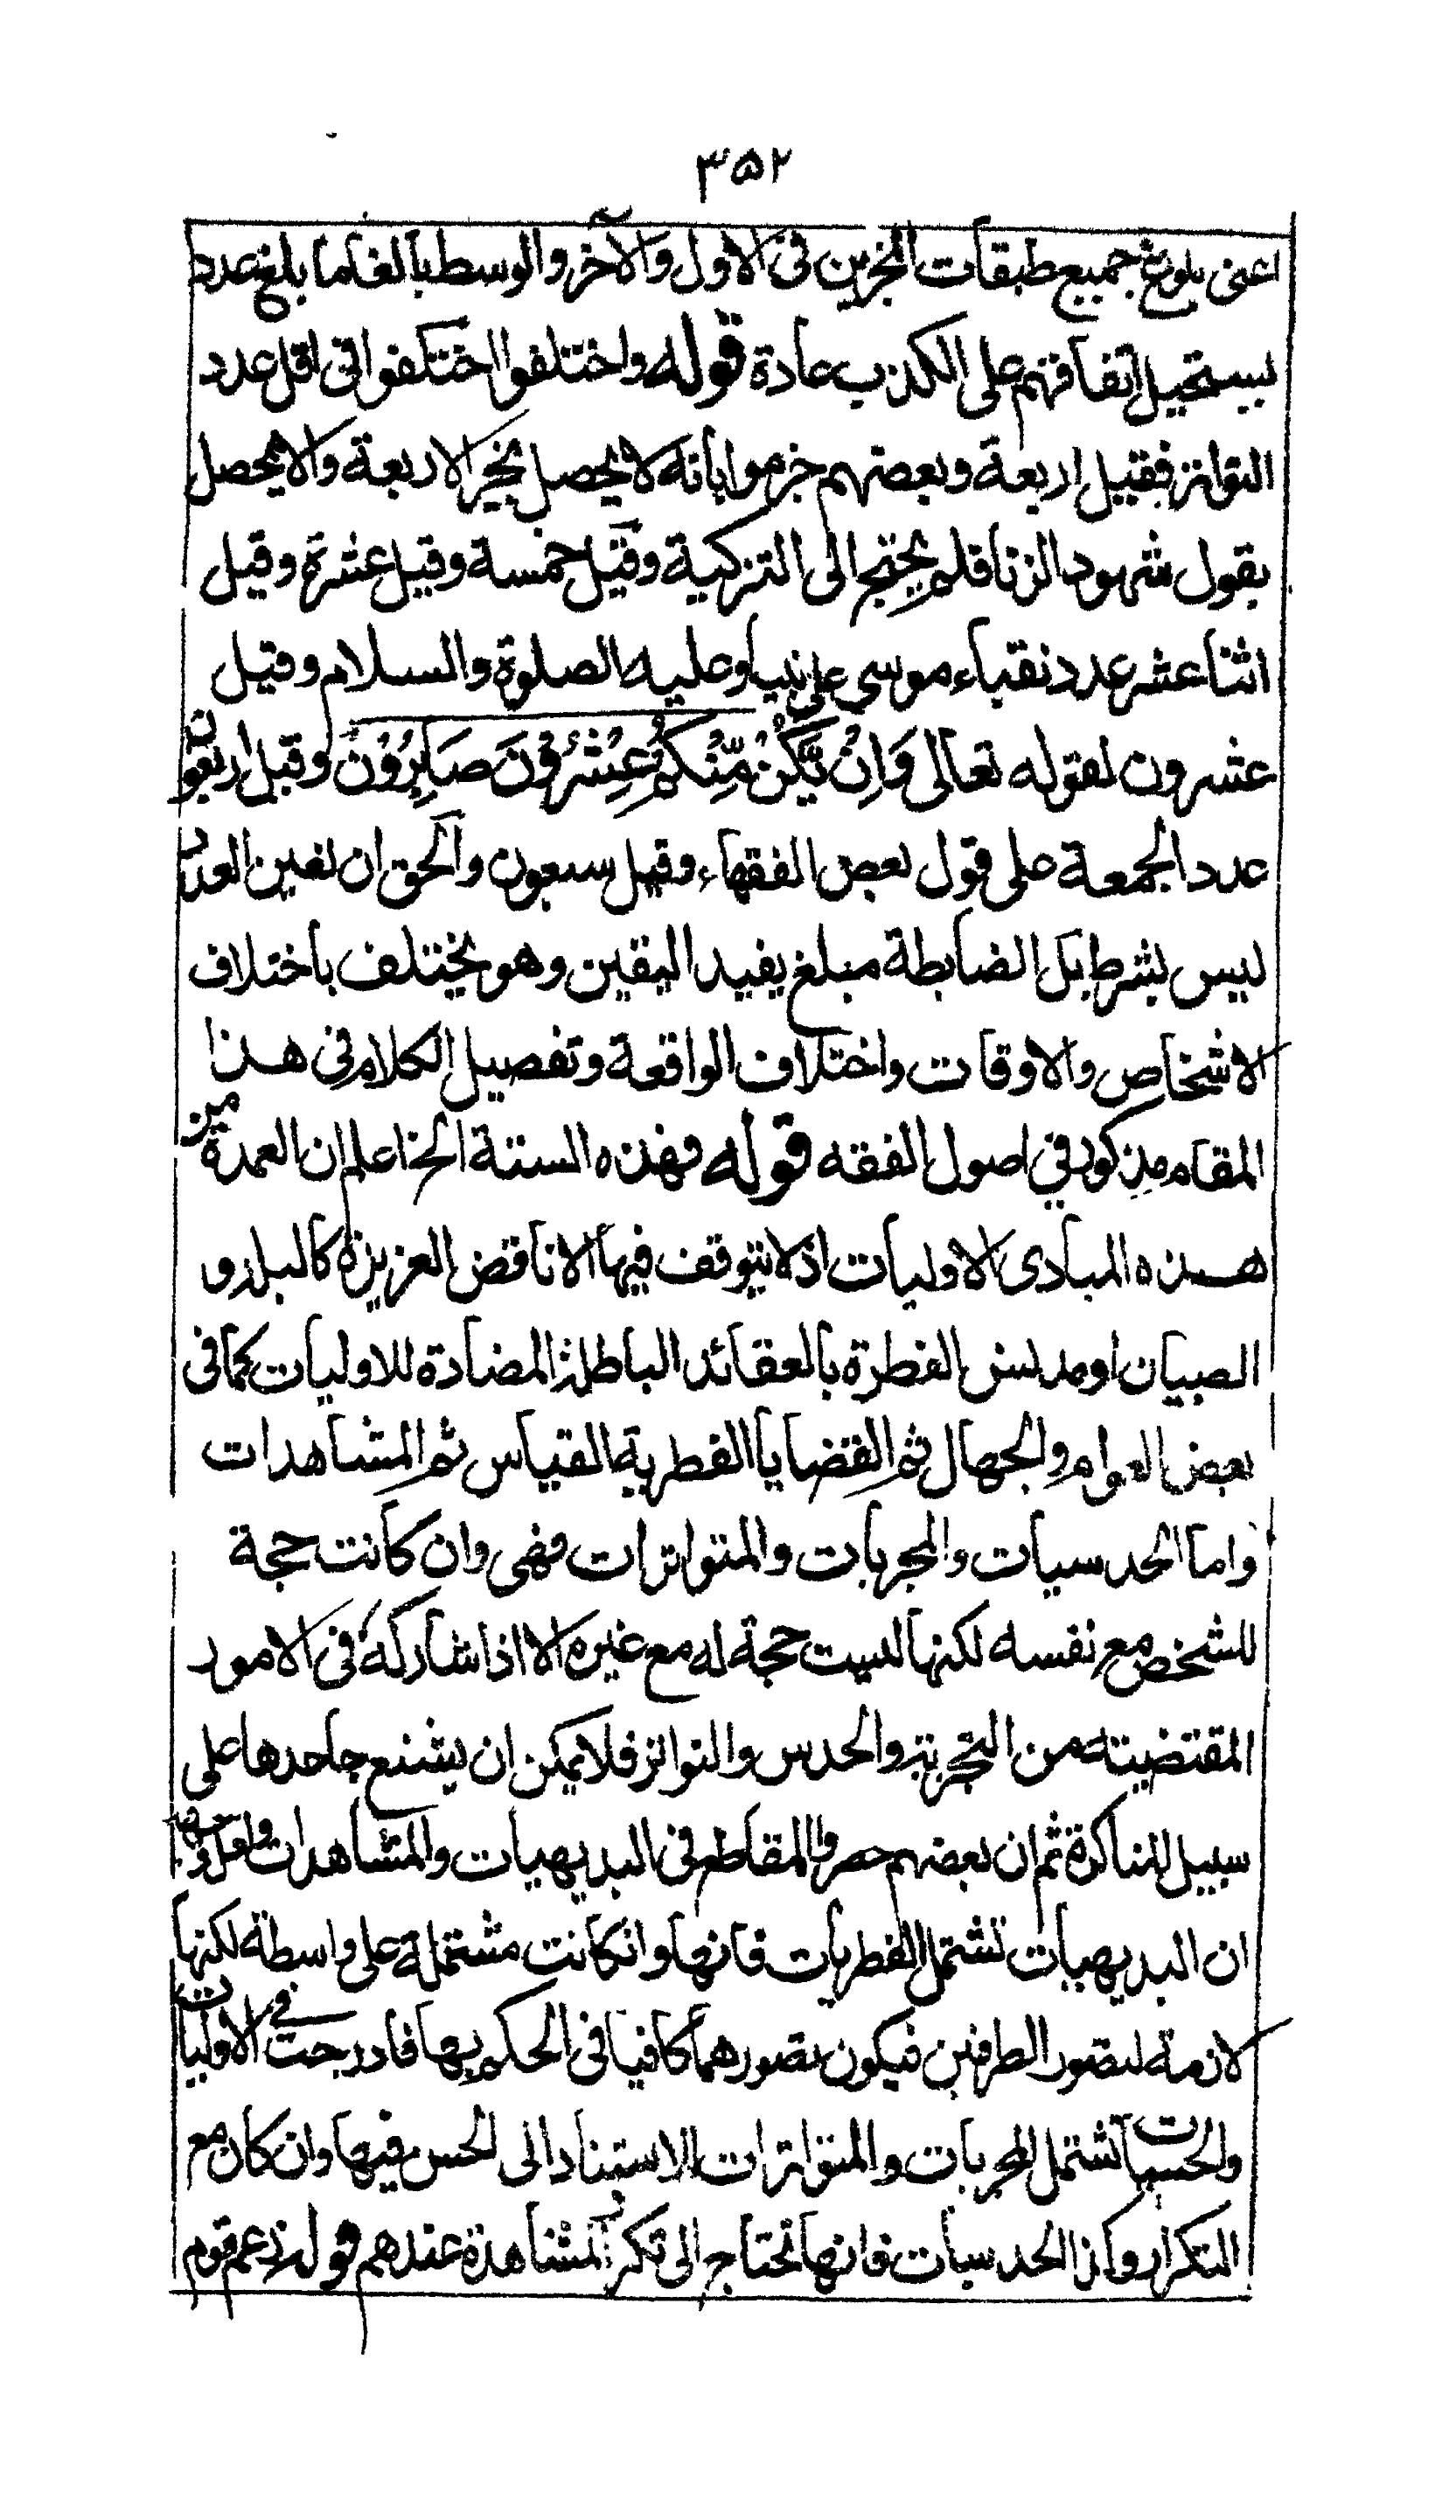 ٣٥٢
اعنى بلوغ جميع طبقات المخبرين فى الاول والآخر والوسط بالغا ما بلغ عدد
يستحيل اتفاقهم على الكذب عادة قوله واختلفوا اختلفوا فى اقل عدد
التواتر فقيل اربعة وبعضهم جزموا بانه لا يحصل بخبر الاربعة والا يحصل
بقول شهود الزنا فلم يحتج الى التزكية وقيل خمسة وقيل عشرة وقيل
اثنا عشر عدد نقباء موسى على نبينا وعليه الصلوة والسلام وقيل
عشرون لقوله تعالى وَاِنْ يَّكُنْ مِّنْكُمْ عِشْرُوْنَ صَابِرُوْنَ وقيل اربعون
عدد الجمعة على قول بعض الفقهاء وقيل سبعون والحق ان تعين العدد
ليس بشرط بل الضابطة مبلغ يفيد اليقين وهو يختلف باختلاف
الاشخاص والاوقات واختلاف الواقعة وتفصيل الكلام فى هذا
المقام مذكور فى اصول الفقه قوله فهذه الستة الخ اعلم ان العمدة من
هذه المبادى الاوليات اذ لا يتوقف فيها الا ناقص الغريزة كالبله و
الصبيان او مدنس الفطرة بالعقائد الباطلة المضادة للاوليات كما فى
بعض العوام والجهال ثم القضايا الفطرية القياس ثم المشاهدات
واما الحدسيات والمجربات والمتواترات فهى وان كانت حجة
للشخص مع نفسه لكنها ليست حجة له مع غيره الا اذا شاركه فى الامور
المقتضيته من التجربة والحدس والتواتر فلا يمكن ان يشنع جاحدها على
سبيل المناكرة ثم ان بعضهم حصروا المقاطع فى البديهيات والمشاهدات
ان البديهيات تشتمل الفطريات فانها وانكانت مشتملة على واسطة لكنها
لازمة لتصور الطرفين فيكون تصورهما كافيا فى الحكم بها فادرجت فى الاوليات
والحسيات تشتمل المجربات والمتواترات لاستناد الى الحس فيها وان كان مع
التكرار وكذا الحدسيات فانها تحتاج الى تكرر المشاهدة عندهم قوله زعم قوم